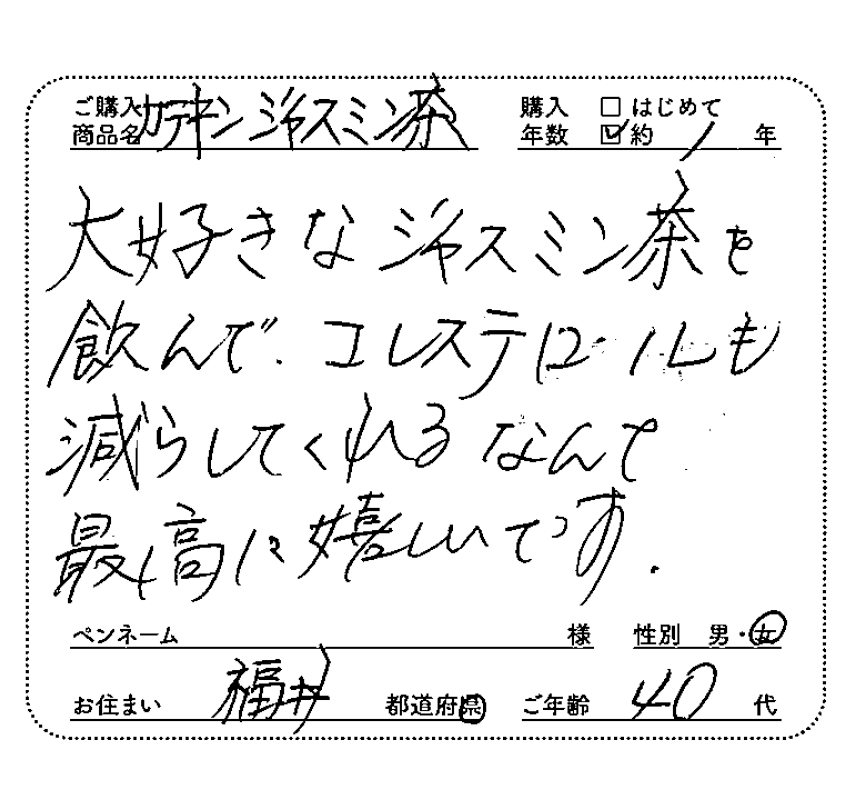 ご購入 商品名 カテキンジャスミン茶 購入 年数 □ はじめて ☑ 約 1 年
大好きなジャスミン茶を
飲んで、コレステロールも
減らしてくれるなんて
最高に嬉しいです.
ペンネーム 様 性別 男・女
お住まい 福井 都道府県 ご年齢 40 代